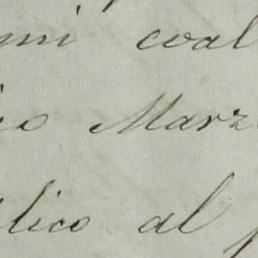 mi coal
io Marz
lico al